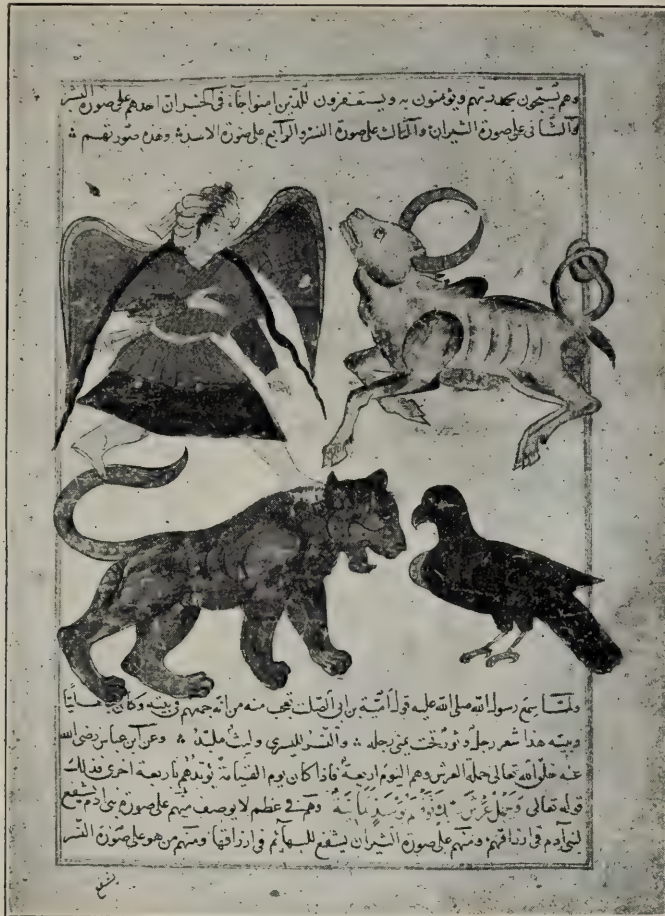 وهم يسبحون بحمد ربهم ويؤمنون به ويستغفرون للذين امنوا جاء في الخبر ان احدهم على صورة البشر
والثانى على صورة الثيران والثالث على صورة النسر والرابع على صورة الاسد وهذه صورتهم
ولما سمع رسول الله صلى الله عليه قول امية بن ابى الصلت تعجب منه من انه جمعهم فى بيته وكان
وبيته هذا شعر رجل وثور تحت يمنى رجله والنسر لليسرى وليث ملبد وعن ابن عباس رضى الله
عنه خلق الله تعالى حملة العرش وهم اليوم اربعة فاذا كان يوم القيامة يؤيدهم باربعة اخرى فذلك
قوله تعالى ويحمل عرش ربك فوقهم يومئذ ثمانية وهم فى عظم لا يوصف منهم على صورة بنى ادم يشفع
لبنى آدم فى ارزاقهم ومنهم على صورة الثيران يشفع للبهائم فى ارزاقها ومنهم من هو على صورة النسر
يشفع